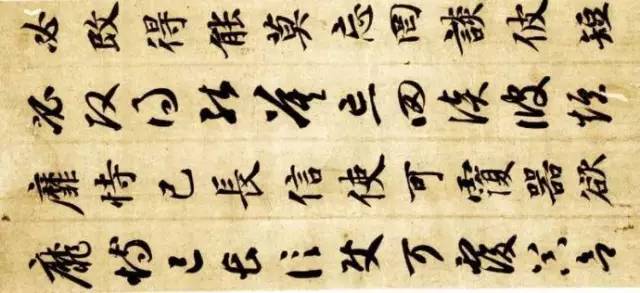 必改得能莫忘罔談彼短
必改得能莫忘罔談彼短
靡恃己長信使可覆器欲
靡恃己長信使可覆器欲